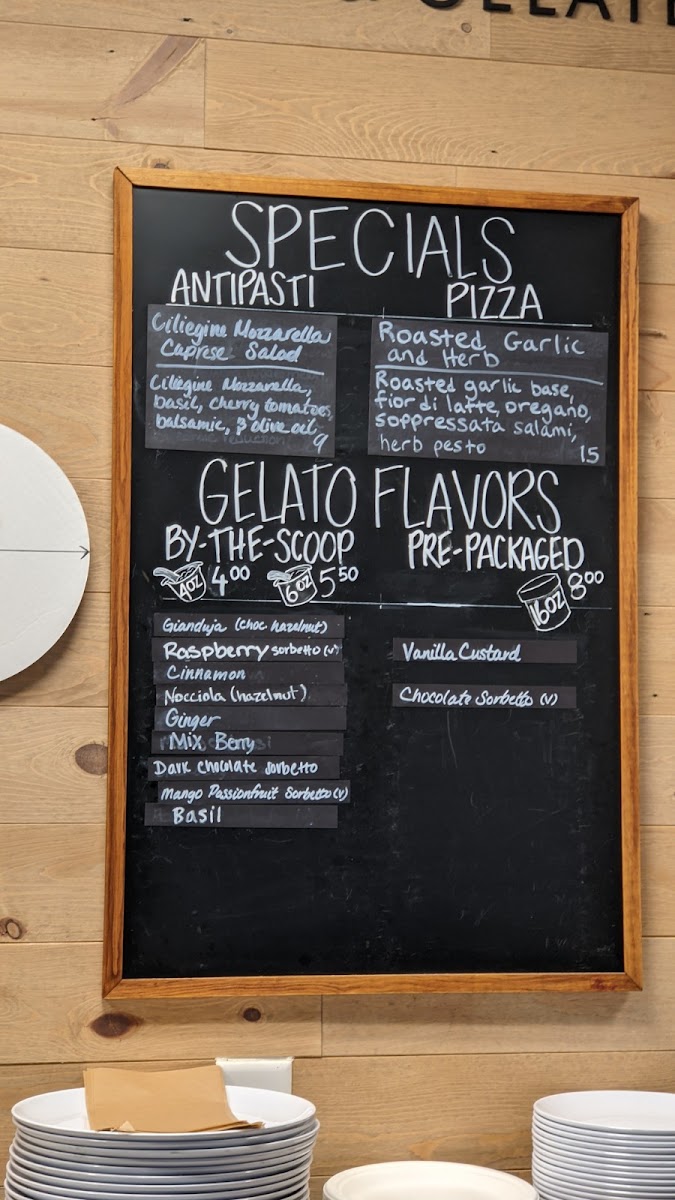 SPECIALS
ANTIPASTI
Ciliegine Mozzarella
Caprese Salad
Ciliegine Mozzarella,
basil, cherry tomatoes,
balsamic, & olive oil,
9
PIZZA
Roasted Garlic
and Herb
Roasted garlic base,
fior di latte, oregano,
soppressata salami,
herb pesto 15
GELATO FLAVORS
BY-THE-SCOOP
4oz 4.00 6oz 5.50
Gianduja (choc hazelnut)
Raspberry sorbetto (v)
Cinnamon
Nocciola (hazelnut)
Ginger
Mix Berry
Dark Chocolate Sorbetto
Mango Passionfruit Sorbetto (v)
Basil
PRE-PACKAGED
16oz 8.00
Vanilla Custard
Chocolate Sorbetto (v)